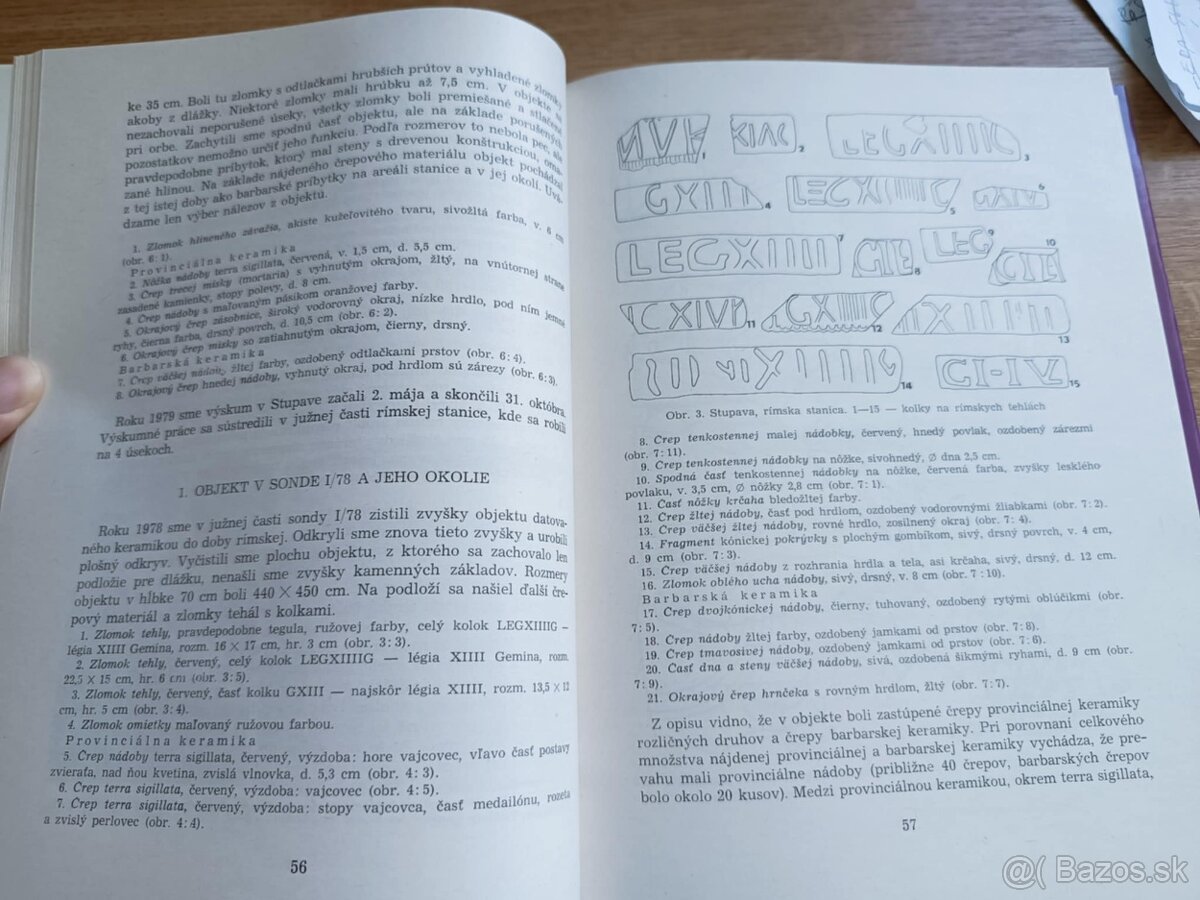 ke 35 cm. Boli tu zlomky s odtlačkami hrubších prútov a vyhladené zlomky
akoby z dlážky. Niektoré zlomky mali hrúbku až 7,5 cm. V objekte sa
nezachovali neporušené úseky, všetky zlomky boli premiešané a stlačené
pri orbe. Zachytili sme spodnú časť objektu, ale na základe porušených
pozostatkov nemožno určiť jeho funkciu. Podľa rozmerov to nebola pec, ale
pravdepodobne príbytok, ktorý mal steny s drevenou konštrukciou, oma-
zané hlinou. Na základe nájdeného črepového materiálu objekt pochádzal
z tej istej doby ako barbarské príbytky na areáli stanice a v jej okolí. Uvá-
dzame len výber nálezov z objektu.
1. Zlomok hlineného závažia, akiste kužeľovitého tvaru, sivožltá farba, v. 6 cm
(obr. 6: 1).
Provinciálna keramika
2. Nôžka nádoby terra sigillata, červená, v. 1,5 cm, d. 5,5 cm.
3. Črep trecej misky (mortaria) s vyhnutým okrajom, žltý, na vnútornej strane
zasadené kamienky, stopy polevy, d. 8 cm.
4. Črep nádoby s maľovaným pásikom oranžovej farby.
5. Okrajový črep zásobnice, široký vodorovný okraj, nízke hrdlo, pod ním jemné
ryhy, čierna farba, drsný povrch, d. 10,5 cm (obr. 6: 2).
6. Okrajový črep misky so zatiahnutým okrajom, čierny, drsný.
Barbarská keramika
7. Črep väčšej nádoby, žltej farby, ozdobený odtlačkami prstov (obr. 6: 4).
8. Okrajový črep hnedej nádoby, vyhnutý okraj, pod hrdlom sú zárezy (obr. 6: 3).
Roku 1979 sme výskum v Stupave začali 2. mája a skončili 31. októbra.
Výskumné práce sa sústredili v južnej časti rímskej stanice, kde sa robili
na 4 úsekoch.
1. OBJEKT V SONDE I/78 A JEHO OKOLIE
Roku 1978 sme v južnej časti sondy I/78 zistili zvyšky objektu datova-
ného keramikou do doby rímskej. Odkryli sme znova tieto zvyšky a urobili
plošný odkryv. Vyčistili sme plochu objektu, z ktorého sa zachovalo len
podložie pre dlážku, nenašli sme zvyšky kamenných základov. Rozmery
objektu v hĺbke 70 cm boli 440 × 450 cm. Na podloží sa našiel ďalší čre-
pový materiál a zlomky tehál s kolkami.
1. Zlomok tehly, pravdepodobne tegula, ružovej farby, celý kolok LEGXIIIIG –
légia XIIII Gemina, rozm. 16 × 17 cm, hr. 3 cm (obr. 3: 3).
2. Zlomok tehly, červený, celý kolok LEGXIIIIG — légia XIIII Gemina, rozm.
22,5 × 15 cm, hr. 6 cm (obr. 3: 5).
3. Zlomok tehly, červený, časť kolku GXIII — najskôr légia XIIII, rozm. 13,5 × 12
cm, hr. 5 cm (obr. 3: 4).
4. Zlomok omietky maľovaný ružovou farbou.
Provinciálna keramika
5. Črep nádoby terra sigillata, červený, výzdoba: hore vajcovec, vľavo časť postavy
zvieraťa, nad ňou kvetina, zvislá vlnovka, d. 5,3 cm (obr. 4: 3).
6. Črep terra sigillata, červený, výzdoba: vajcovec (obr. 4: 5).
7. Črep terra sigillata, červený, výzdoba: stopy vajcovca, časť medailónu, rozeta
a zvislý perlovec (obr. 4: 4).
56
1
KIAC 2
LEGXIIIIG 3
GXIII 4
LEGXIIIIG 5
GXIV 6
LEGXIIII 7
8
LEG 9
10
GXIV 11
GXIIII 12
XIIII 13
14
GI-IV 15
Obr. 3. Stupava, rímska stanica. 1—15 — kolky na rímskych tehlách
8. Črep tenkostennej malej nádobky, červený, hnedý povlak, ozdobený zárezmi
(obr. 7: 11).
9. Črep tenkostennej nádobky na nôžke, sivohnedý, Ø dna 2,5 cm.
10. Spodná časť tenkostennej nádobky na nôžke, červená farba, zvyšky lesklého
povlaku, v. 3,5 cm, Ø nôžky 2,8 cm (obr. 7: 1).
11. Časť nôžky krčaha bledožltej farby.
12. Črep žltej nádoby, časť pod hrdlom, ozdobený vodorovnými žliabkami (obr. 7: 2).
13. Črep väčšej žltej nádoby, rovné hrdlo, zosilnený okraj (obr. 7: 4).
14. Fragment kónickej pokrývky s plochým gombíkom, sivý, drsný povrch, v. 4 cm,
d. 9 cm (obr. 7: 3).
15. Črep väčšej nádoby z rozhrania hrdla a tela, asi krčaha, sivý, drsný, d. 12 cm.
16. Zlomok oblého ucha nádoby, sivý, drsný, v. 8 cm (obr. 7 : 10).
Barbarská keramika
17. Črep dvojkónickej nádoby, čierny, tuhovaný, ozdobený rytými oblúčikmi (obr.
7: 5).
18. Črep nádoby žltej farby, ozdobený jamkami od prstov (obr. 7: 8).
19. Črep tmavosivej nádoby, ozdobený jamkami od prstov (obr. 7: 6).
20. Časť dna a steny väčšej nádoby, sivá, ozdobená šikmými ryhami, d. 9 cm (obr.
7: 9).
21. Okrajový črep hrnčeka s rovným hrdlom, žltý (obr. 7: 7).
Z opisu vidno, že v objekte boli zastúpené črepy provinciálnej keramiky
rozličných druhov a črepy barbarskej keramiky. Pri porovnaní celkového
množstva nájdenej provinciálnej a barbarskej keramiky vychádza, že pre-
vahu mali provinciálne nádoby (približne 40 črepov, barbarských črepov
bolo okolo 20 kusov). Medzi provinciálnou keramikou, okrem terra sigillata,
57
@( Bazos.sk